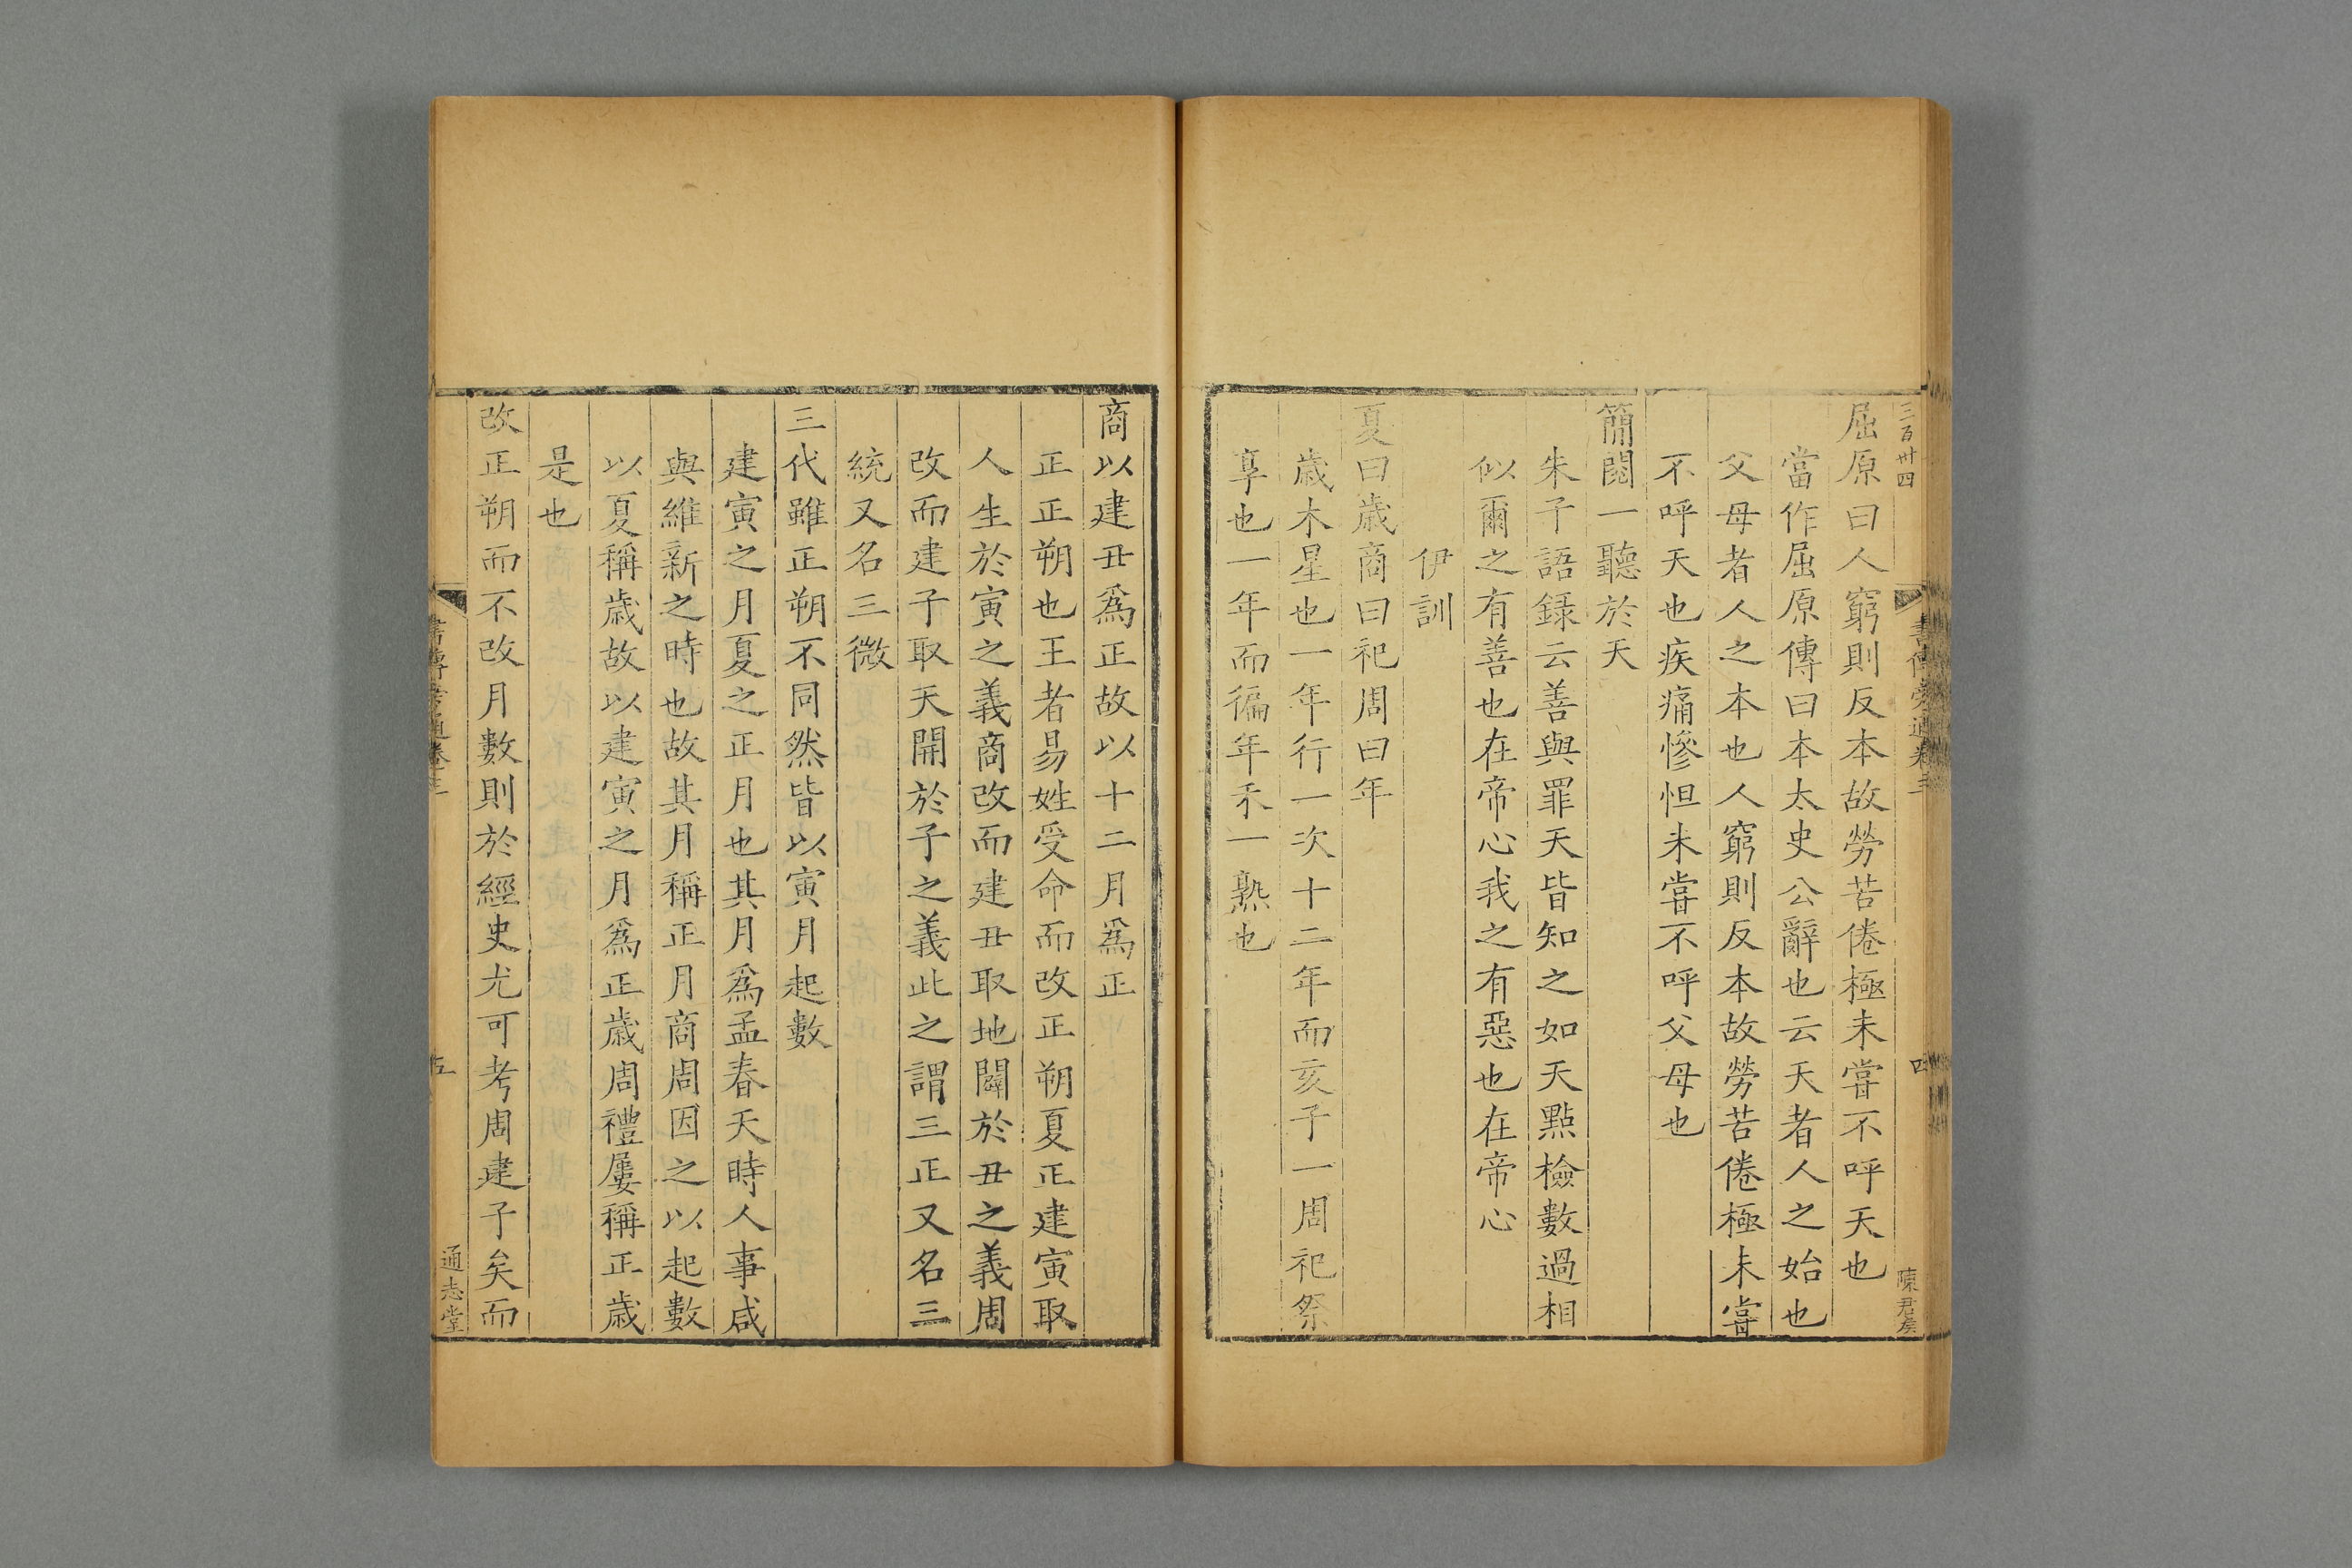 三百卅四
書傳旁通卷三
四
陳君侯
屈原曰人窮則反本故勞苦倦極未嘗不呼天也
當作屈原傳曰本太史公辭也云天者人之始也
父母者人之本也人窮則反本故勞苦倦極未嘗
不呼天也疾痛慘怛未嘗不呼父母也
簡閱一聽於天
朱子語録云善與罪天皆知之如天點檢數過相
似爾之有善也在帝心我之有惡也在帝心
伊訓
夏曰歲商曰祀周曰年
歲木星也一年行一次十二年而亥子一周祀祭
享也一年而徧年禾一熟也
商以建丑爲正故以十二月爲正
正正朔也王者易姓受命而改正朔夏正建寅取
人生於寅之義商改而建丑取地闢於丑之義周
改而建子取天開於子之義此之謂三正又名三
統又名三微
三代雖正朔不同然皆以寅月起數
建寅之月夏之正月也其月爲孟春天時人事咸
與維新之時也故其月稱正月商周因之以起數
以夏稱歲故以建寅之月爲正歲周禮屢稱正歲
是也
改正朔而不改月數則於經史尤可考周建子矣而
書傳旁通卷三
五
通志堂